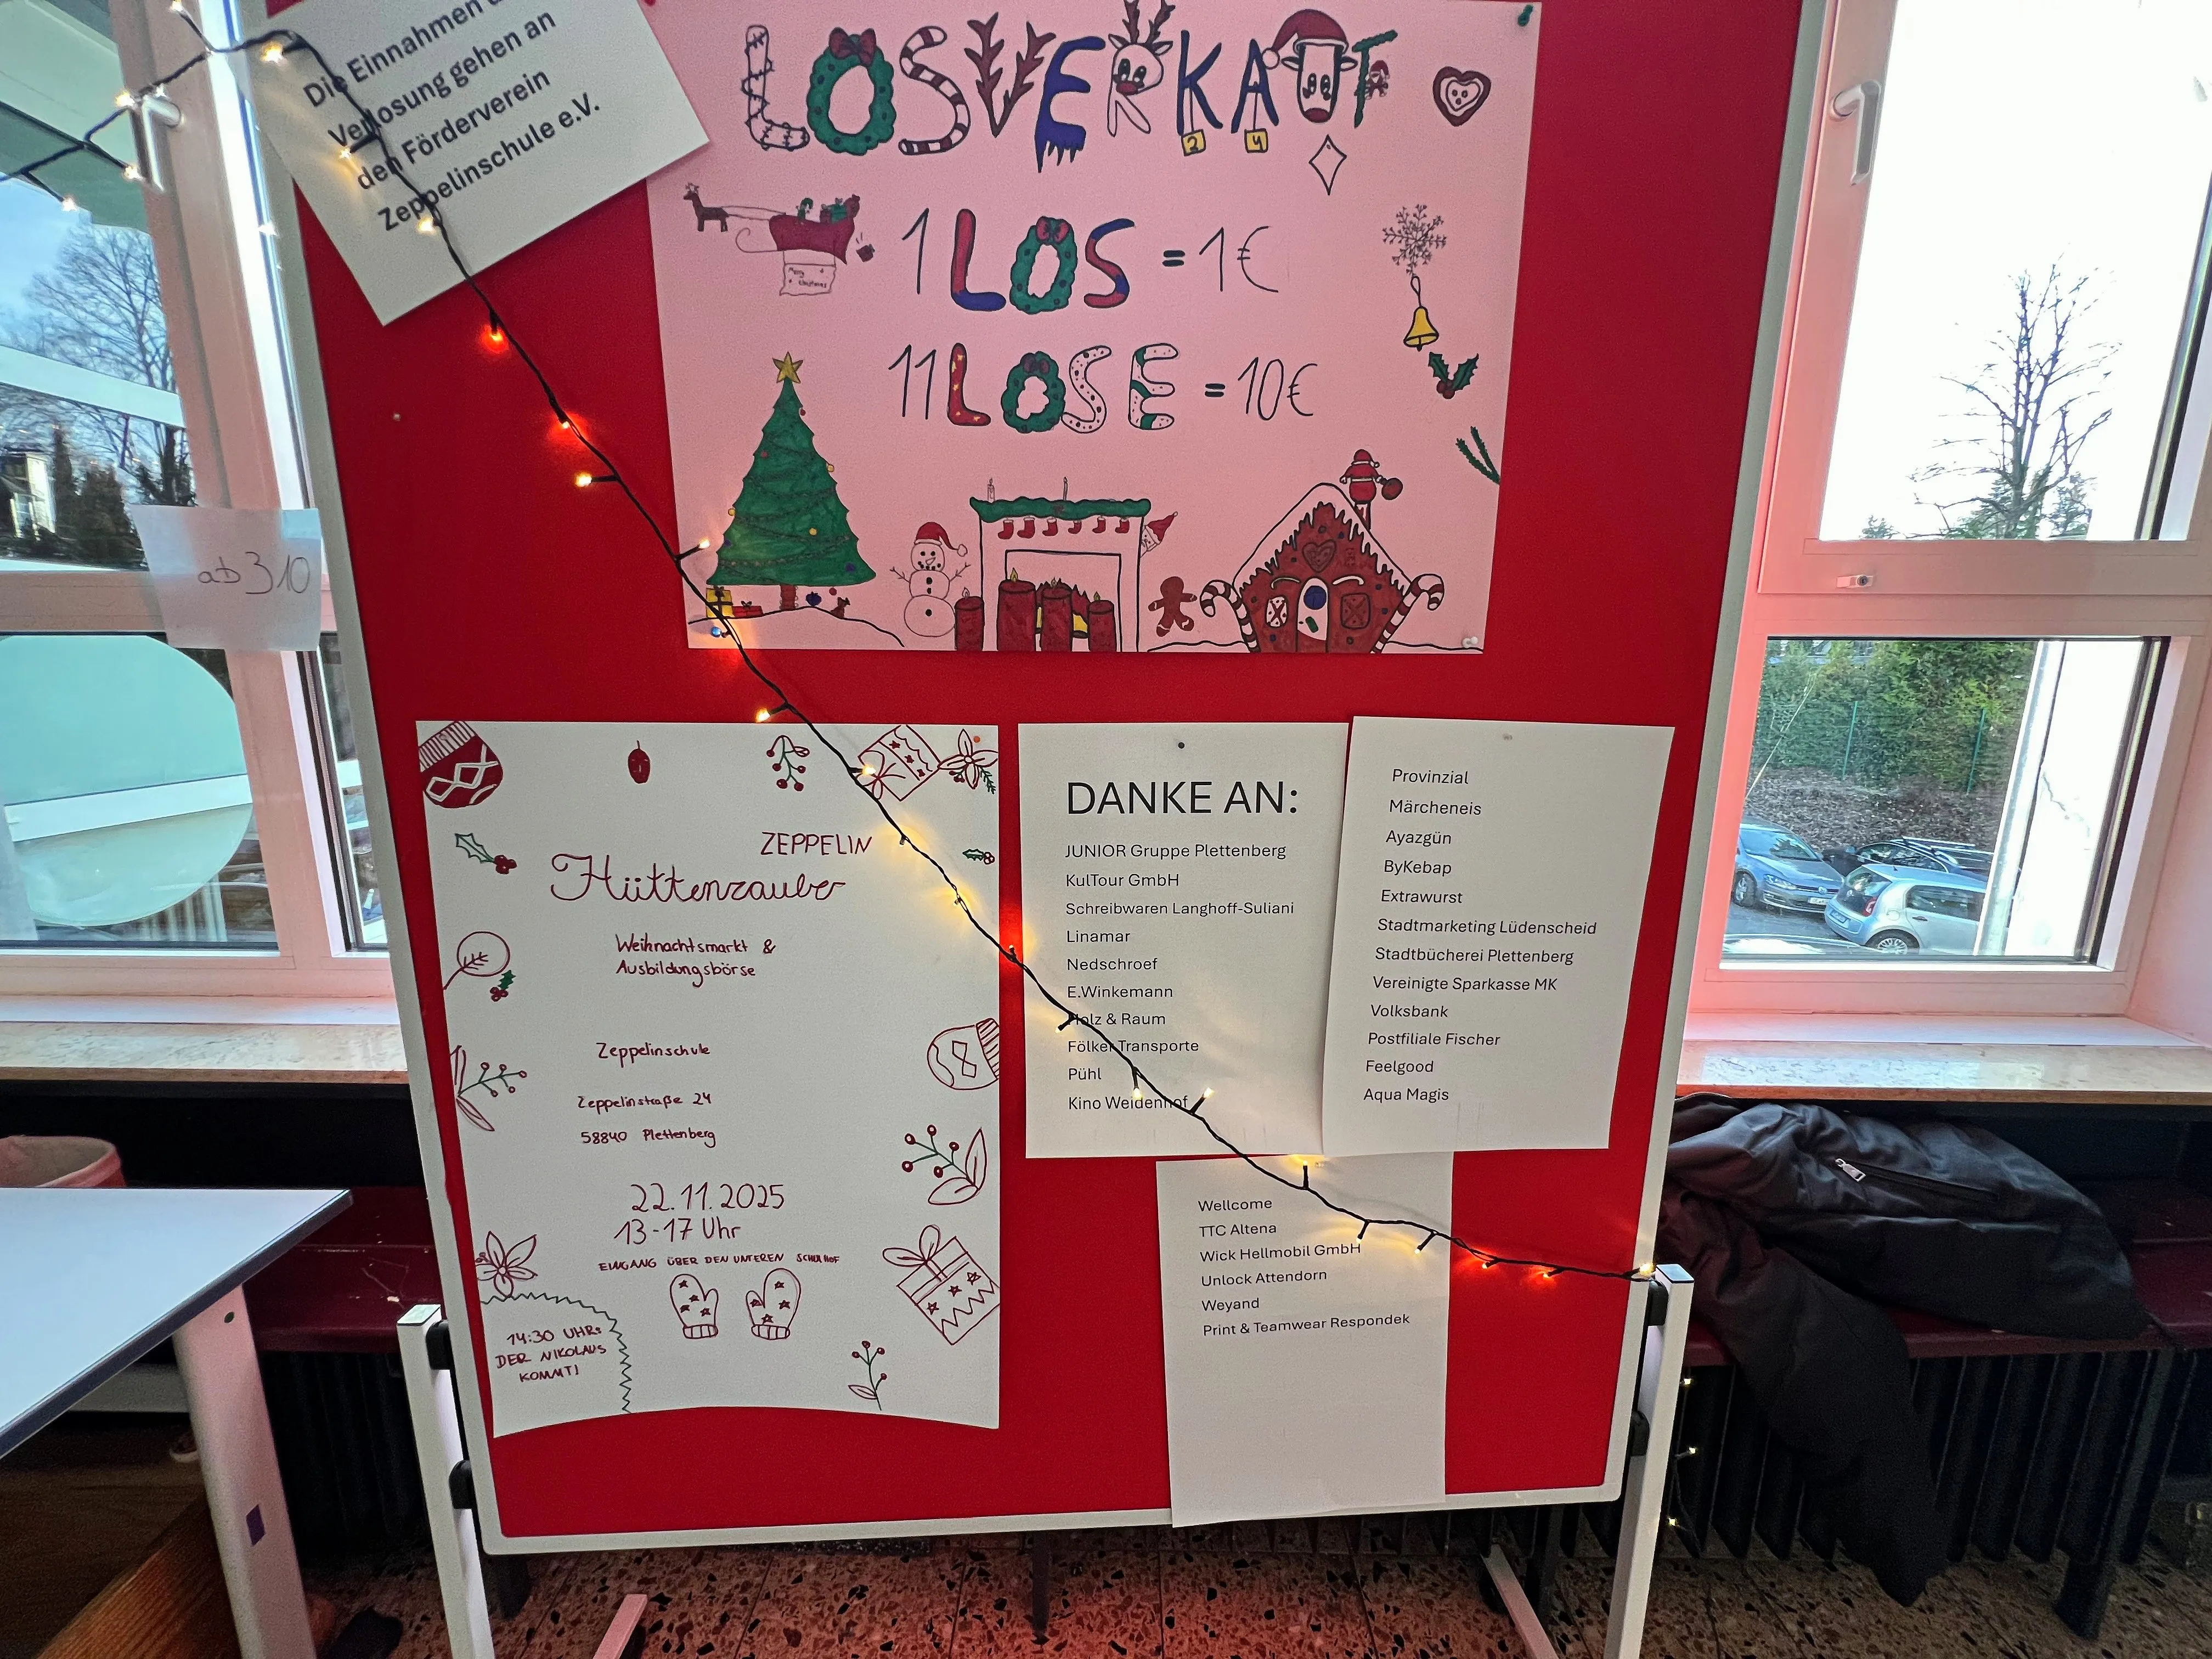 Die Einnahmen
Verlosung gehen an
den Förderverein
Zeppelinschule e.V.
LOSVERKAUF
2 4
1 LOS = 1€
Merry
Christmas
11 LOSE = 10€
ab 310
ZEPPELIN
Hüttenzauber
Weihnachtsmarkt &
Ausbildungsbörse
Zeppelinschule
Zeppelinstraße 24
58840 Plettenberg
22.11.2025
13-17 Uhr
EINGANG ÜBER DEN UNTEREN SCHULHOF
14:30 UHR:
DER NIKOLAUS
KOMMT!
DANKE AN:
JUNIOR Gruppe Plettenberg
KulTour GmbH
Schreibwaren Langhoff-Suliani
Linamar
Nedschroef
E.Winkemann
Holz & Raum
Fölker Transporte
Pühl
Kino Weidenhof
Provinzial
Märcheneis
Ayazgün
ByKebap
Extrawurst
Stadtmarketing Lüdenscheid
Stadtbücherei Plettenberg
Vereinigte Sparkasse MK
Volksbank
Postfiliale Fischer
Feelgood
Aqua Magis
Wellcome
TTC Altena
Wick Hellmobil GmbH
Unlock Attendorn
Weyand
Print & Teamwear Respondek